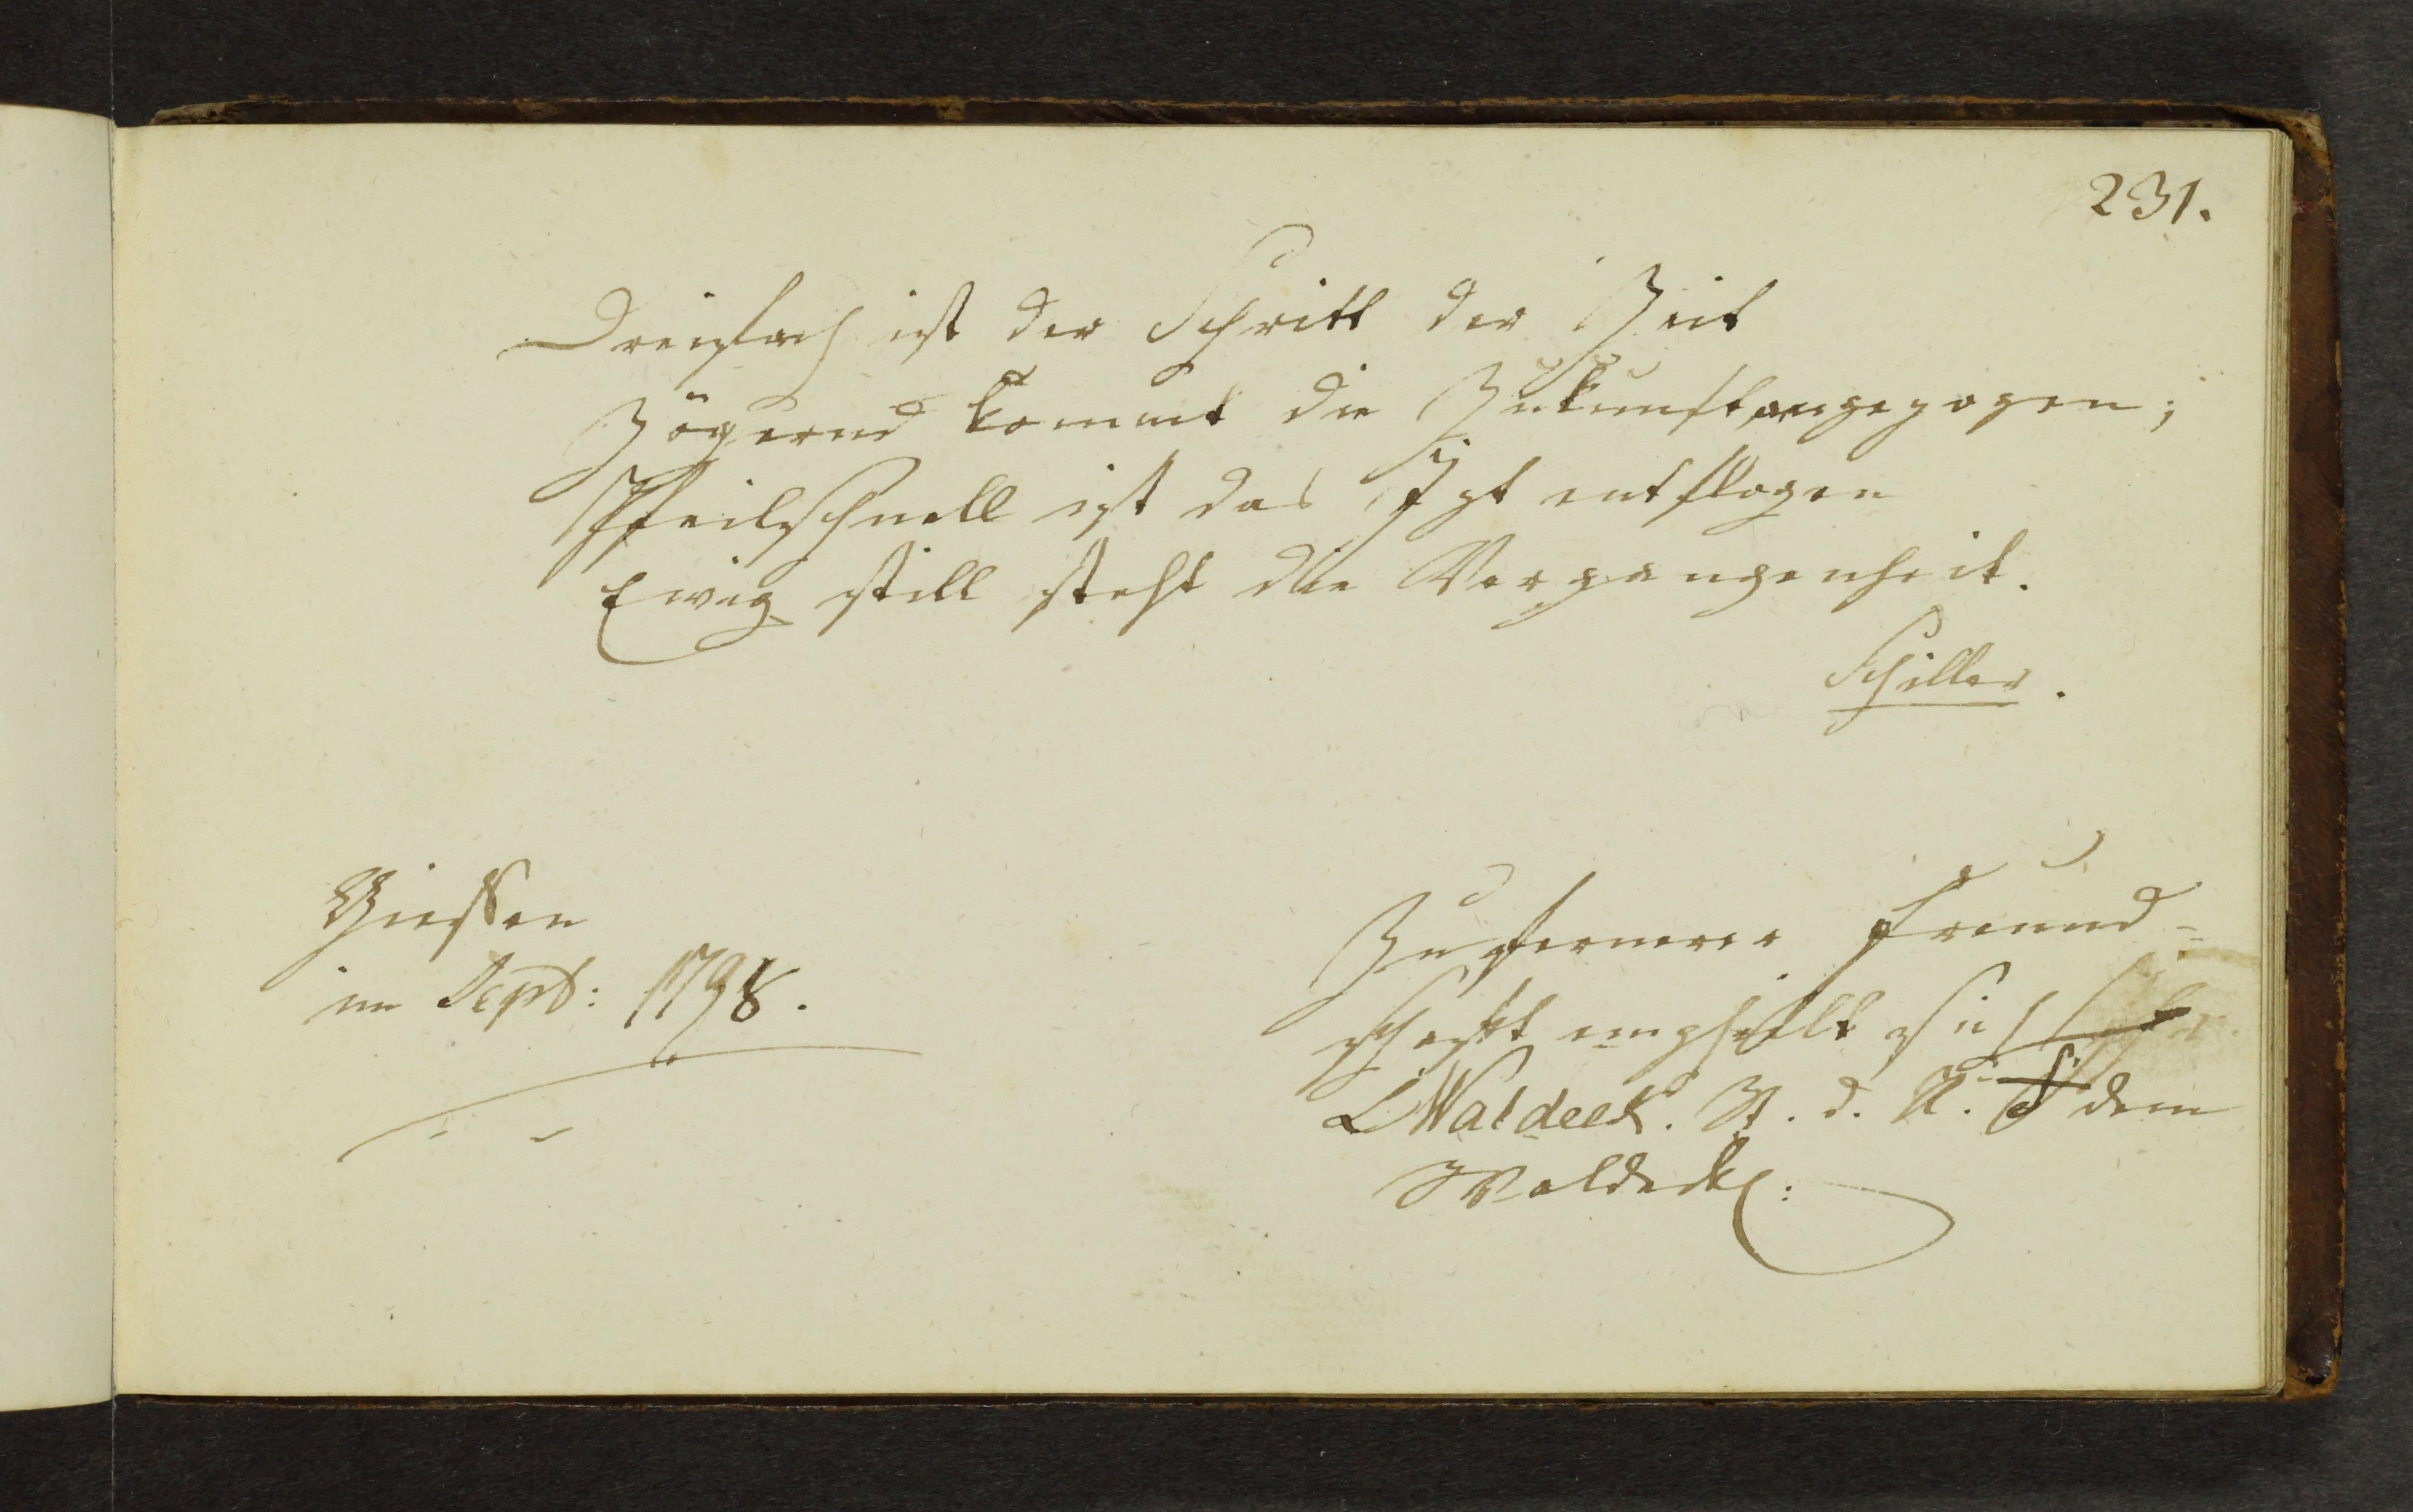 231.
Dreifach ist der Schritt der Zeit
Zögernd kommt die Zukunft angezogen;
Pfeilschnell ist das Jzt entflogen
Ewig still steht die Vergangenheit.
Schiller.
Giessen
im Sept: 1798.
Zu fernerer Freund-
schaft empfielt sich
L Waldeck. B. d. R. dem
Waldeck: